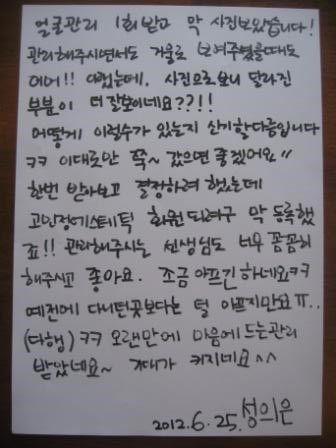 얼굴관리 1회받고 막 사진보았습니다!
관리해주시면서도 거울로 보여주셨을때도
어머!! 이랬는데, 사진으로보니 달라진
부분이 더잘보이네요??!!
어떻게 이럴수가 있는지 신기할다름입니다
ㅋㅋ 이대로만 쭉~ 갔으면 좋겠어요"
한번 받아보고 결정하려 했는데
고민정에스테틱 회원되려구 막 등록했
죠!! 관리해주시는 선생님도 너무 꼼꼼히
해주시고 좋아요. 조금 아프긴 하네요ㅋㅋ
예전에 다니던곳보다는 덜 아프지만요ㅠ..
(다행) ㅋㅋ 오랜만에 마음에드는관리
받았네요~ 기대가 커지네요^^
2012.6.25.성의은